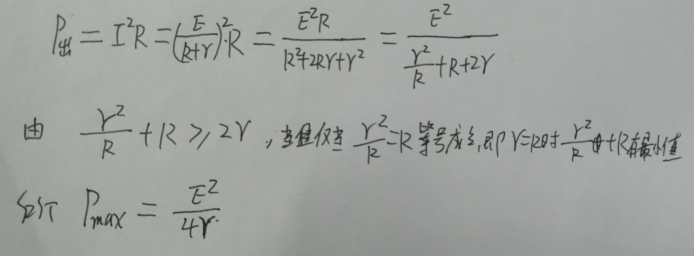 P出 = I²R = (E/(R+r))²·R = E²R/(R²+2Rr+r²) = E²/(r²/R+R+2r)
由 r²/R + R ≥ 2r , 当且仅当 r²/R = R 等号成立, 即 r=R时 r²/R +R有最小值
Pmax = E²/4r